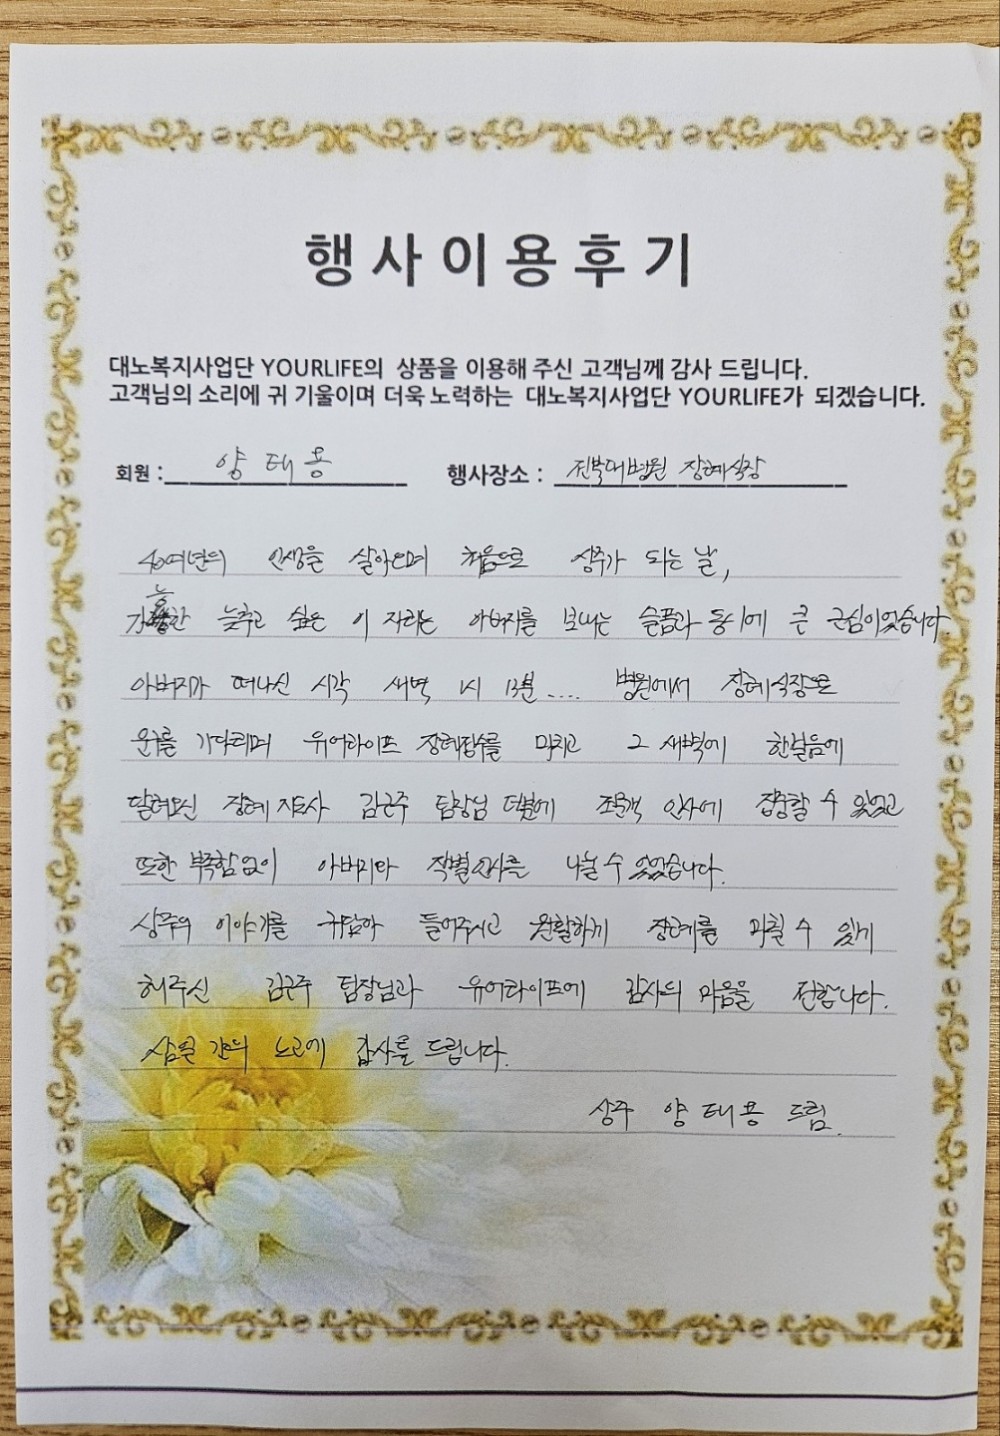 행사이용후기
대노복지사업단 YOURLIFE의 상품을 이용해 주신 고객님께 감사 드립니다.
고객님의 소리에 귀 기울이며 더욱 노력하는 대노복지사업단 YOURLIFE가 되겠습니다.
회원 : 양태용 행사장소 : 전북대병원 장례식장
40여년의 인생을 살아오며 처음으로 상주가 되는 날,
가능한 늦추고 싶은 이 자리는 아버지를 보내는 슬픔과 동시에 큰 근심이었습니다.
아버지가 떠나신 시각 새벽 1시 13분.... 병원에서 장례식장으로
운구를 기다리며 유어라이프 장례접수를 마치고 그 새벽에 한걸음에
달려오신 장례 지도사 김근주 팀장님 덕분에 조문객 인사에 집중할 수 있었고
또한 부족함 없이 아버지와 작별인사를 나눌 수 있었습니다.
상주의 이야기를 귀담아 들어주시고 원활하게 장례를 마칠 수 있게
해주신 김근주 팀장님과 유어라이프에 감사의 마음을 전합니다.
삼일 간의 노고에 감사를 드립니다.
상주 양태용 드림.